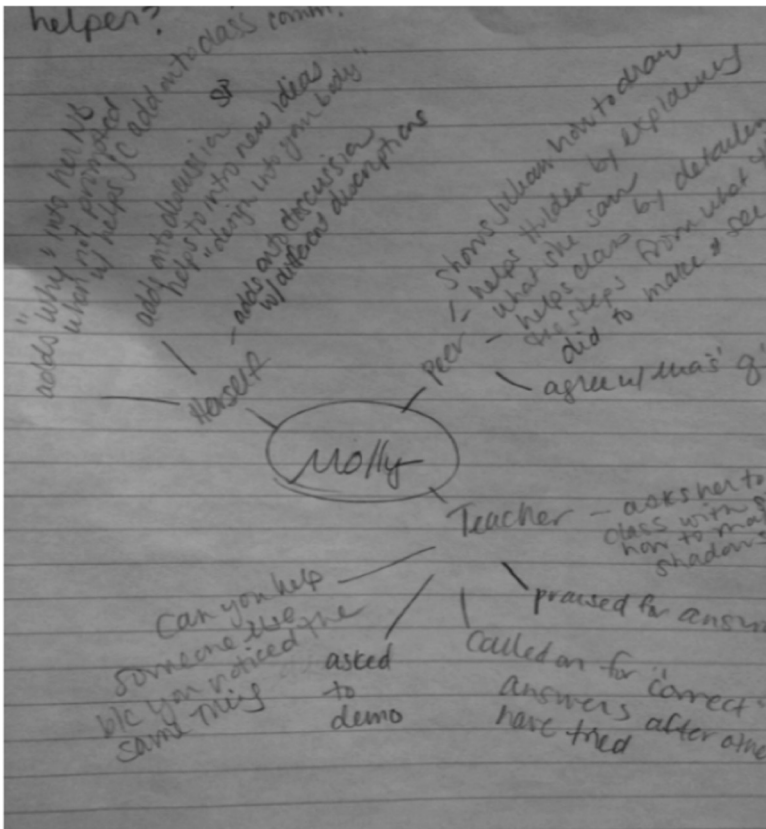 helper?
"adds why" into her NB
when not prompted
w/ helps JC add onto class comm.
adds onto discussion
helps to into new ideas
"design into your body"
- adds onto discussion
w/ descriptions
Herself
Molly
Peer
shows how to draw
- helps by explaining
what she saw
- helps class by detailed
steps from what
did to make & see
agree w/
Teacher - asks her to
class with
how to
shadows
praised for
called on for "correct"
answers after
have tried
asked
to
demo
Can you help
someone else
b/c you noticed the
same thing